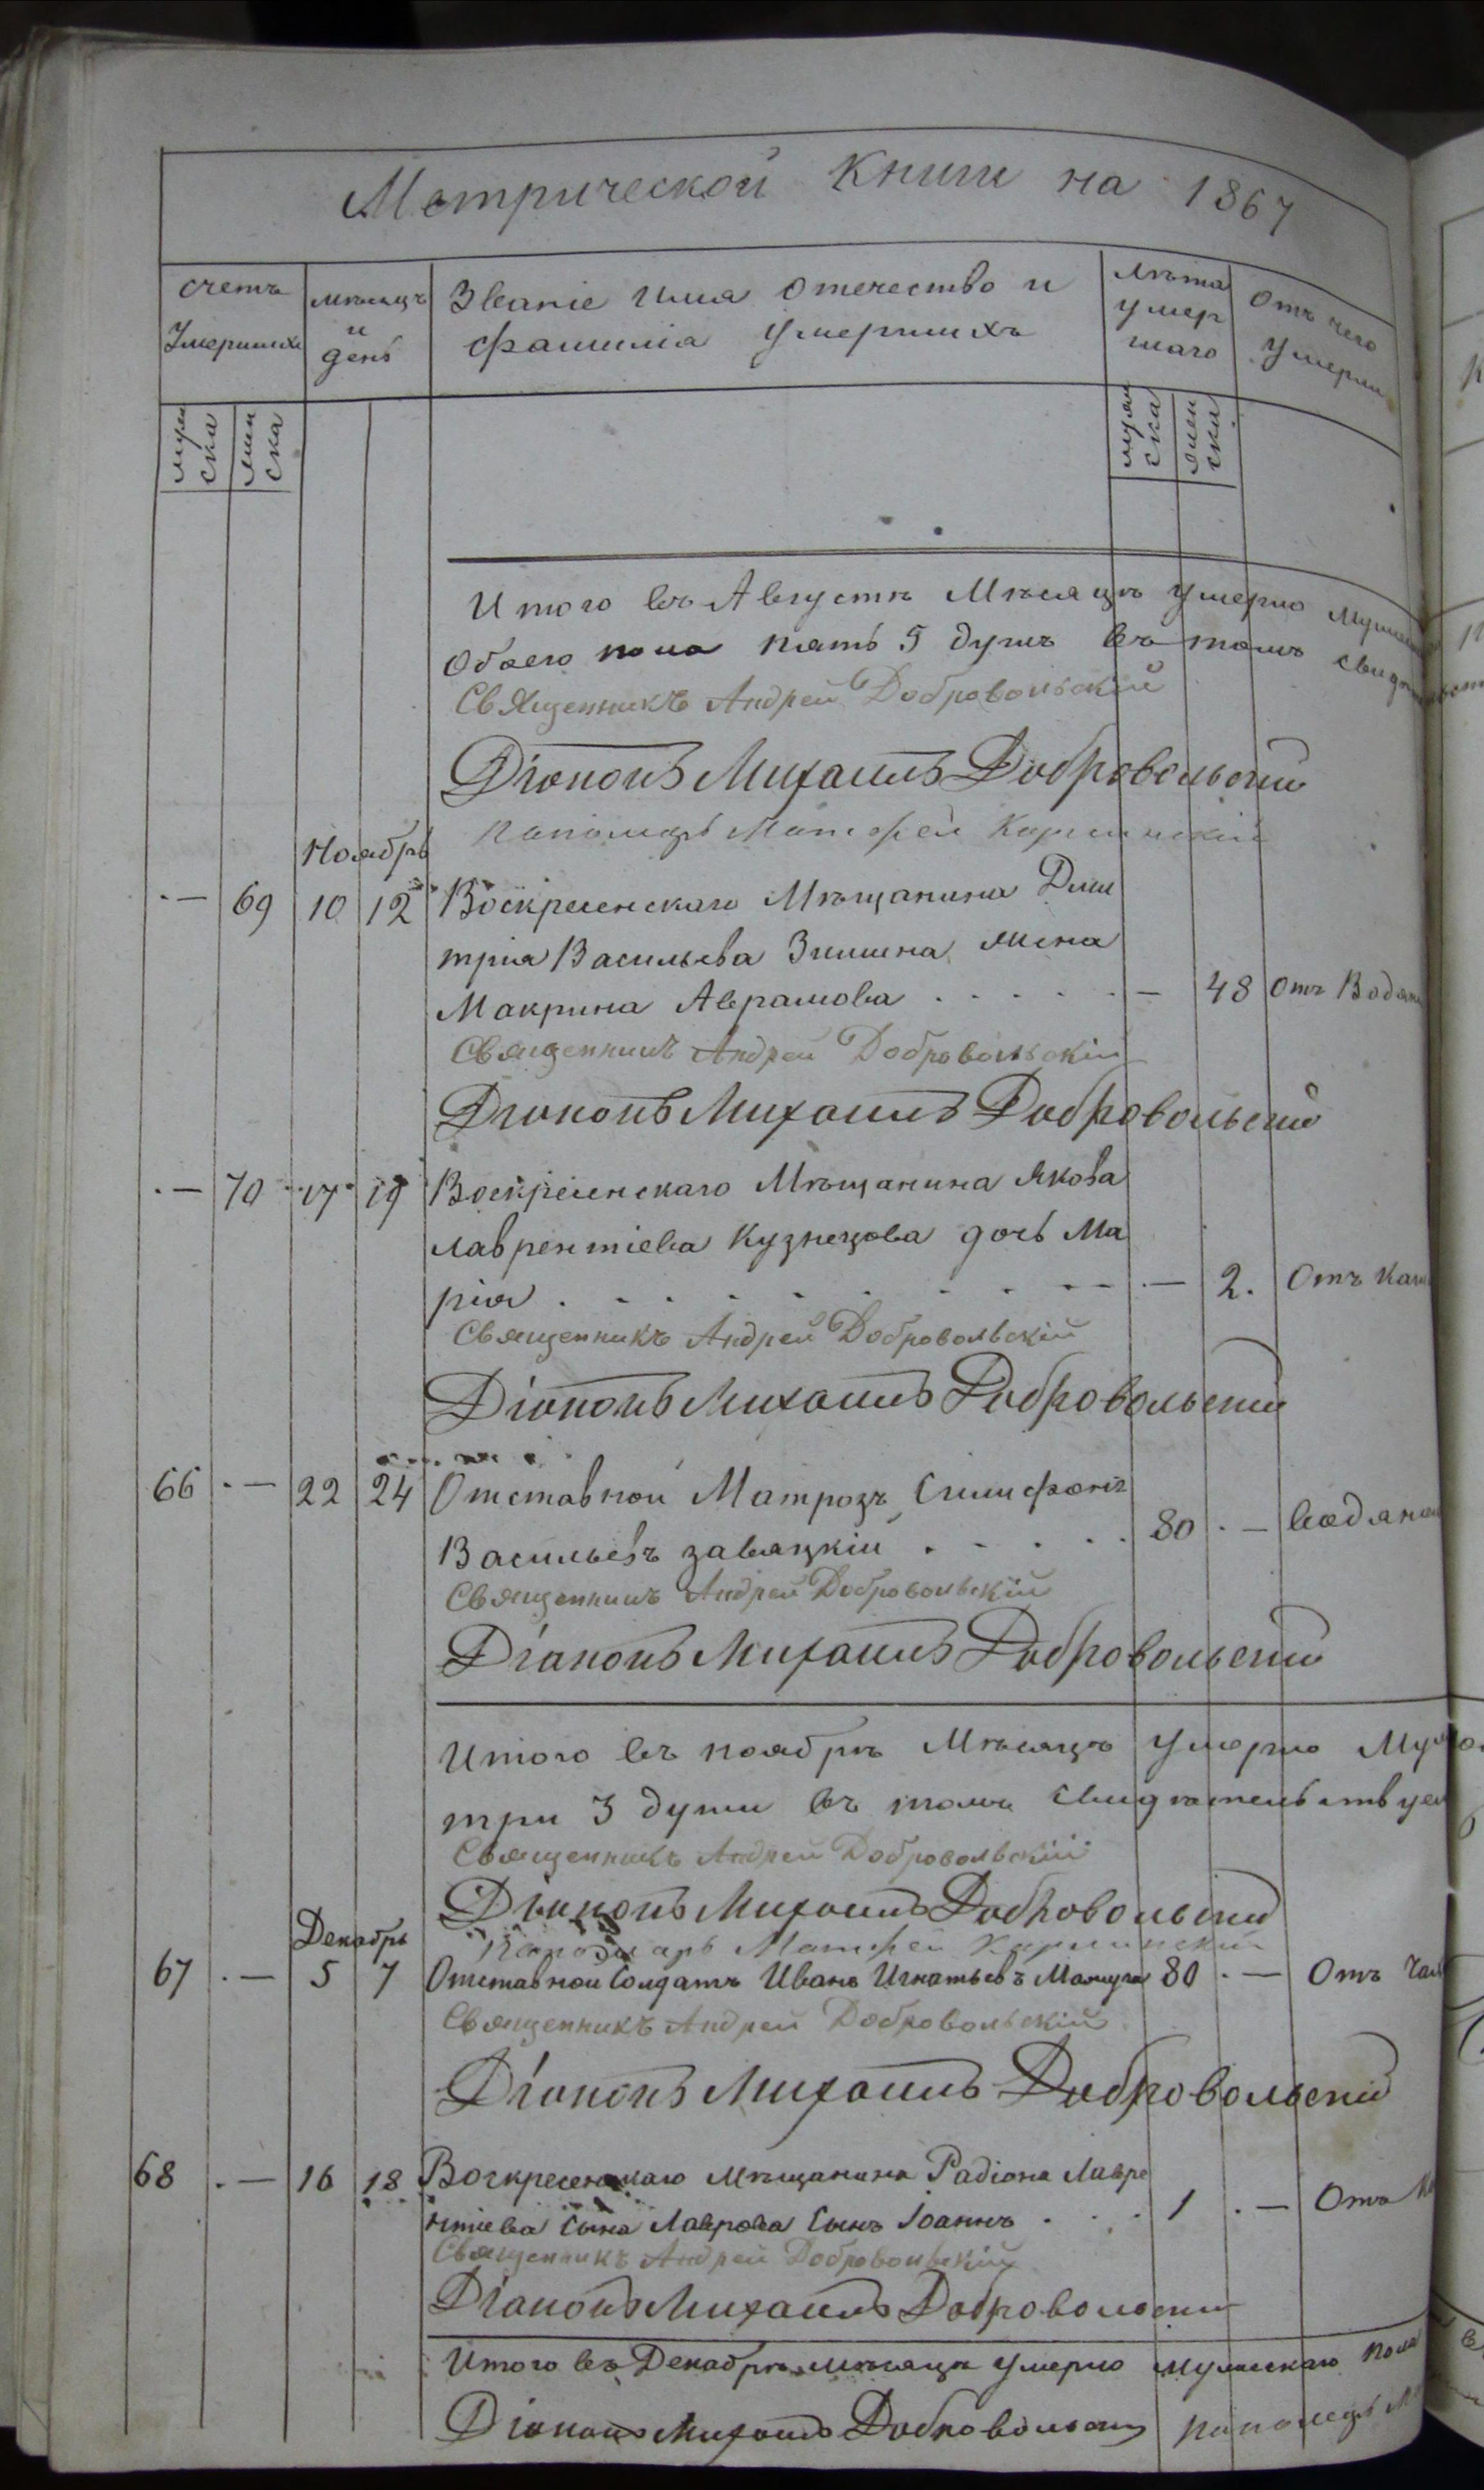 Метрической Книги на 1867
счетъ Умершихъ
мѣсяцъ и день
Званіе имя отечество и фамиліа умершихъ
лѣта умершаго
Отъ чего умерли
муж ска
жен ска
муж ска
жен ска
Итого въ Августѣ Мѣсяцѣ умерло
Обоего пола пять 5 душъ въ томъ
Священникъ Андрей Добровольскій
Діаконъ Михаилъ Добровольскій
Ноябрь
— 69 10 12 Воскресенскаго Мѣщанина Дми
трія Васильева Зимина жена
Макрина Аврамова . . . . . — 48 Отъ
Священникъ Андрей Добровольскій
Діаконъ Михаилъ Добровольскій
— 70 17 19 Воскресенскаго Мѣщанина Якова
лаврентіева Кузнецова дочь Ма
рія . . . . . . . . . — 2. Отъ
Священникъ Андрей Добровольскій
Діаконъ Михаилъ Добровольскій
66 — 22 24 Отставной Матрозъ
Васильевъ . . . . . 80 —
Священникъ Андрей Добровольскій
Діаконъ Михаилъ Добровольскій
Итого въ ноябрѣ Мѣсяцѣ умерло
три 3 души въ томъ
Священникъ Андрей Добровольскій
Діаконъ Михаилъ Добровольскій
Декабрь
67 — 5 7 Отставной Солдатъ Иванъ Игнатьевъ 80 — Отъ
Священникъ Андрей Добровольскій
Діаконъ Михаилъ Добровольскій
68 — 16 18 Воскресенскаго мѣщанина Радіона Лавре
нтіева Сына Лаврова Сынъ Іоаннъ . . . 1 — Отъ
Священникъ Андрей Добровольскій
Діаконъ Михаилъ Добровольскій
Итого въ Декабрѣ мѣсяцѣ умерло мужескаго пола
Діаконъ Михаилъ Добровольскій